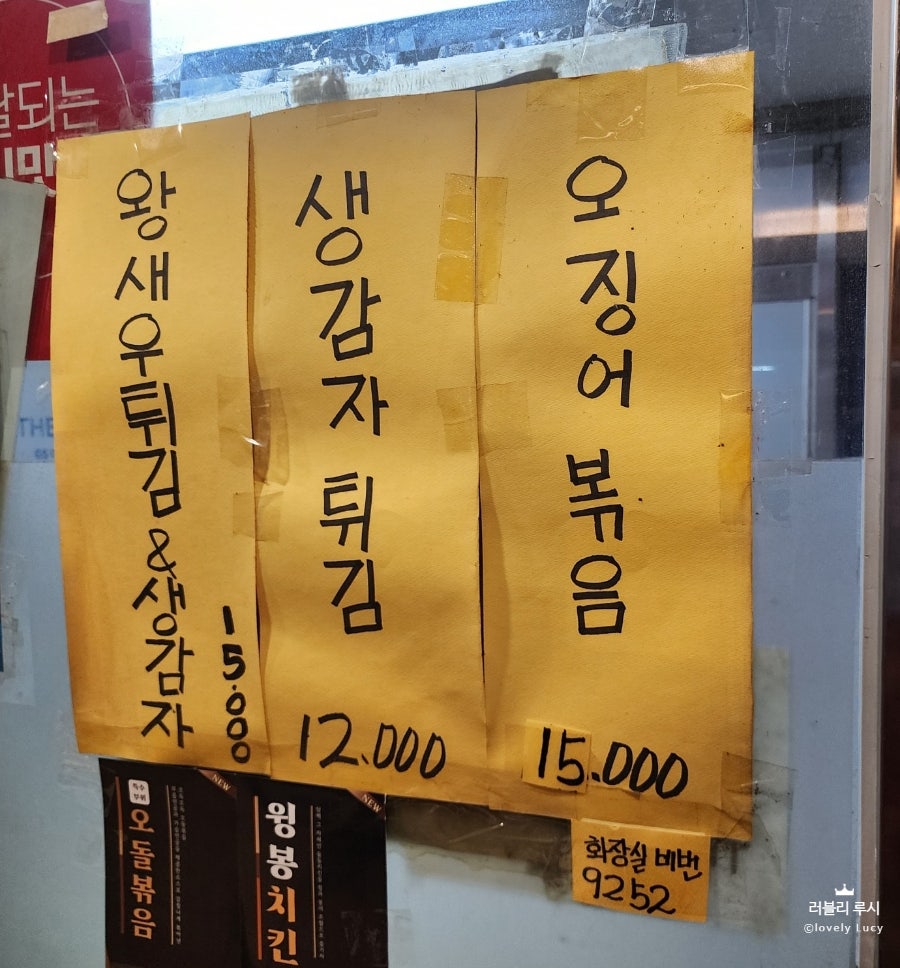 왕새우튀김&생감자
15.000
생감자 튀김
12.000
오징어 볶음
15.000
화장실 비번
9252
NEW
특수
부위
오돌볶음
NEW
윙봉치킨
THE
러블리 루시
©lovely Lucy